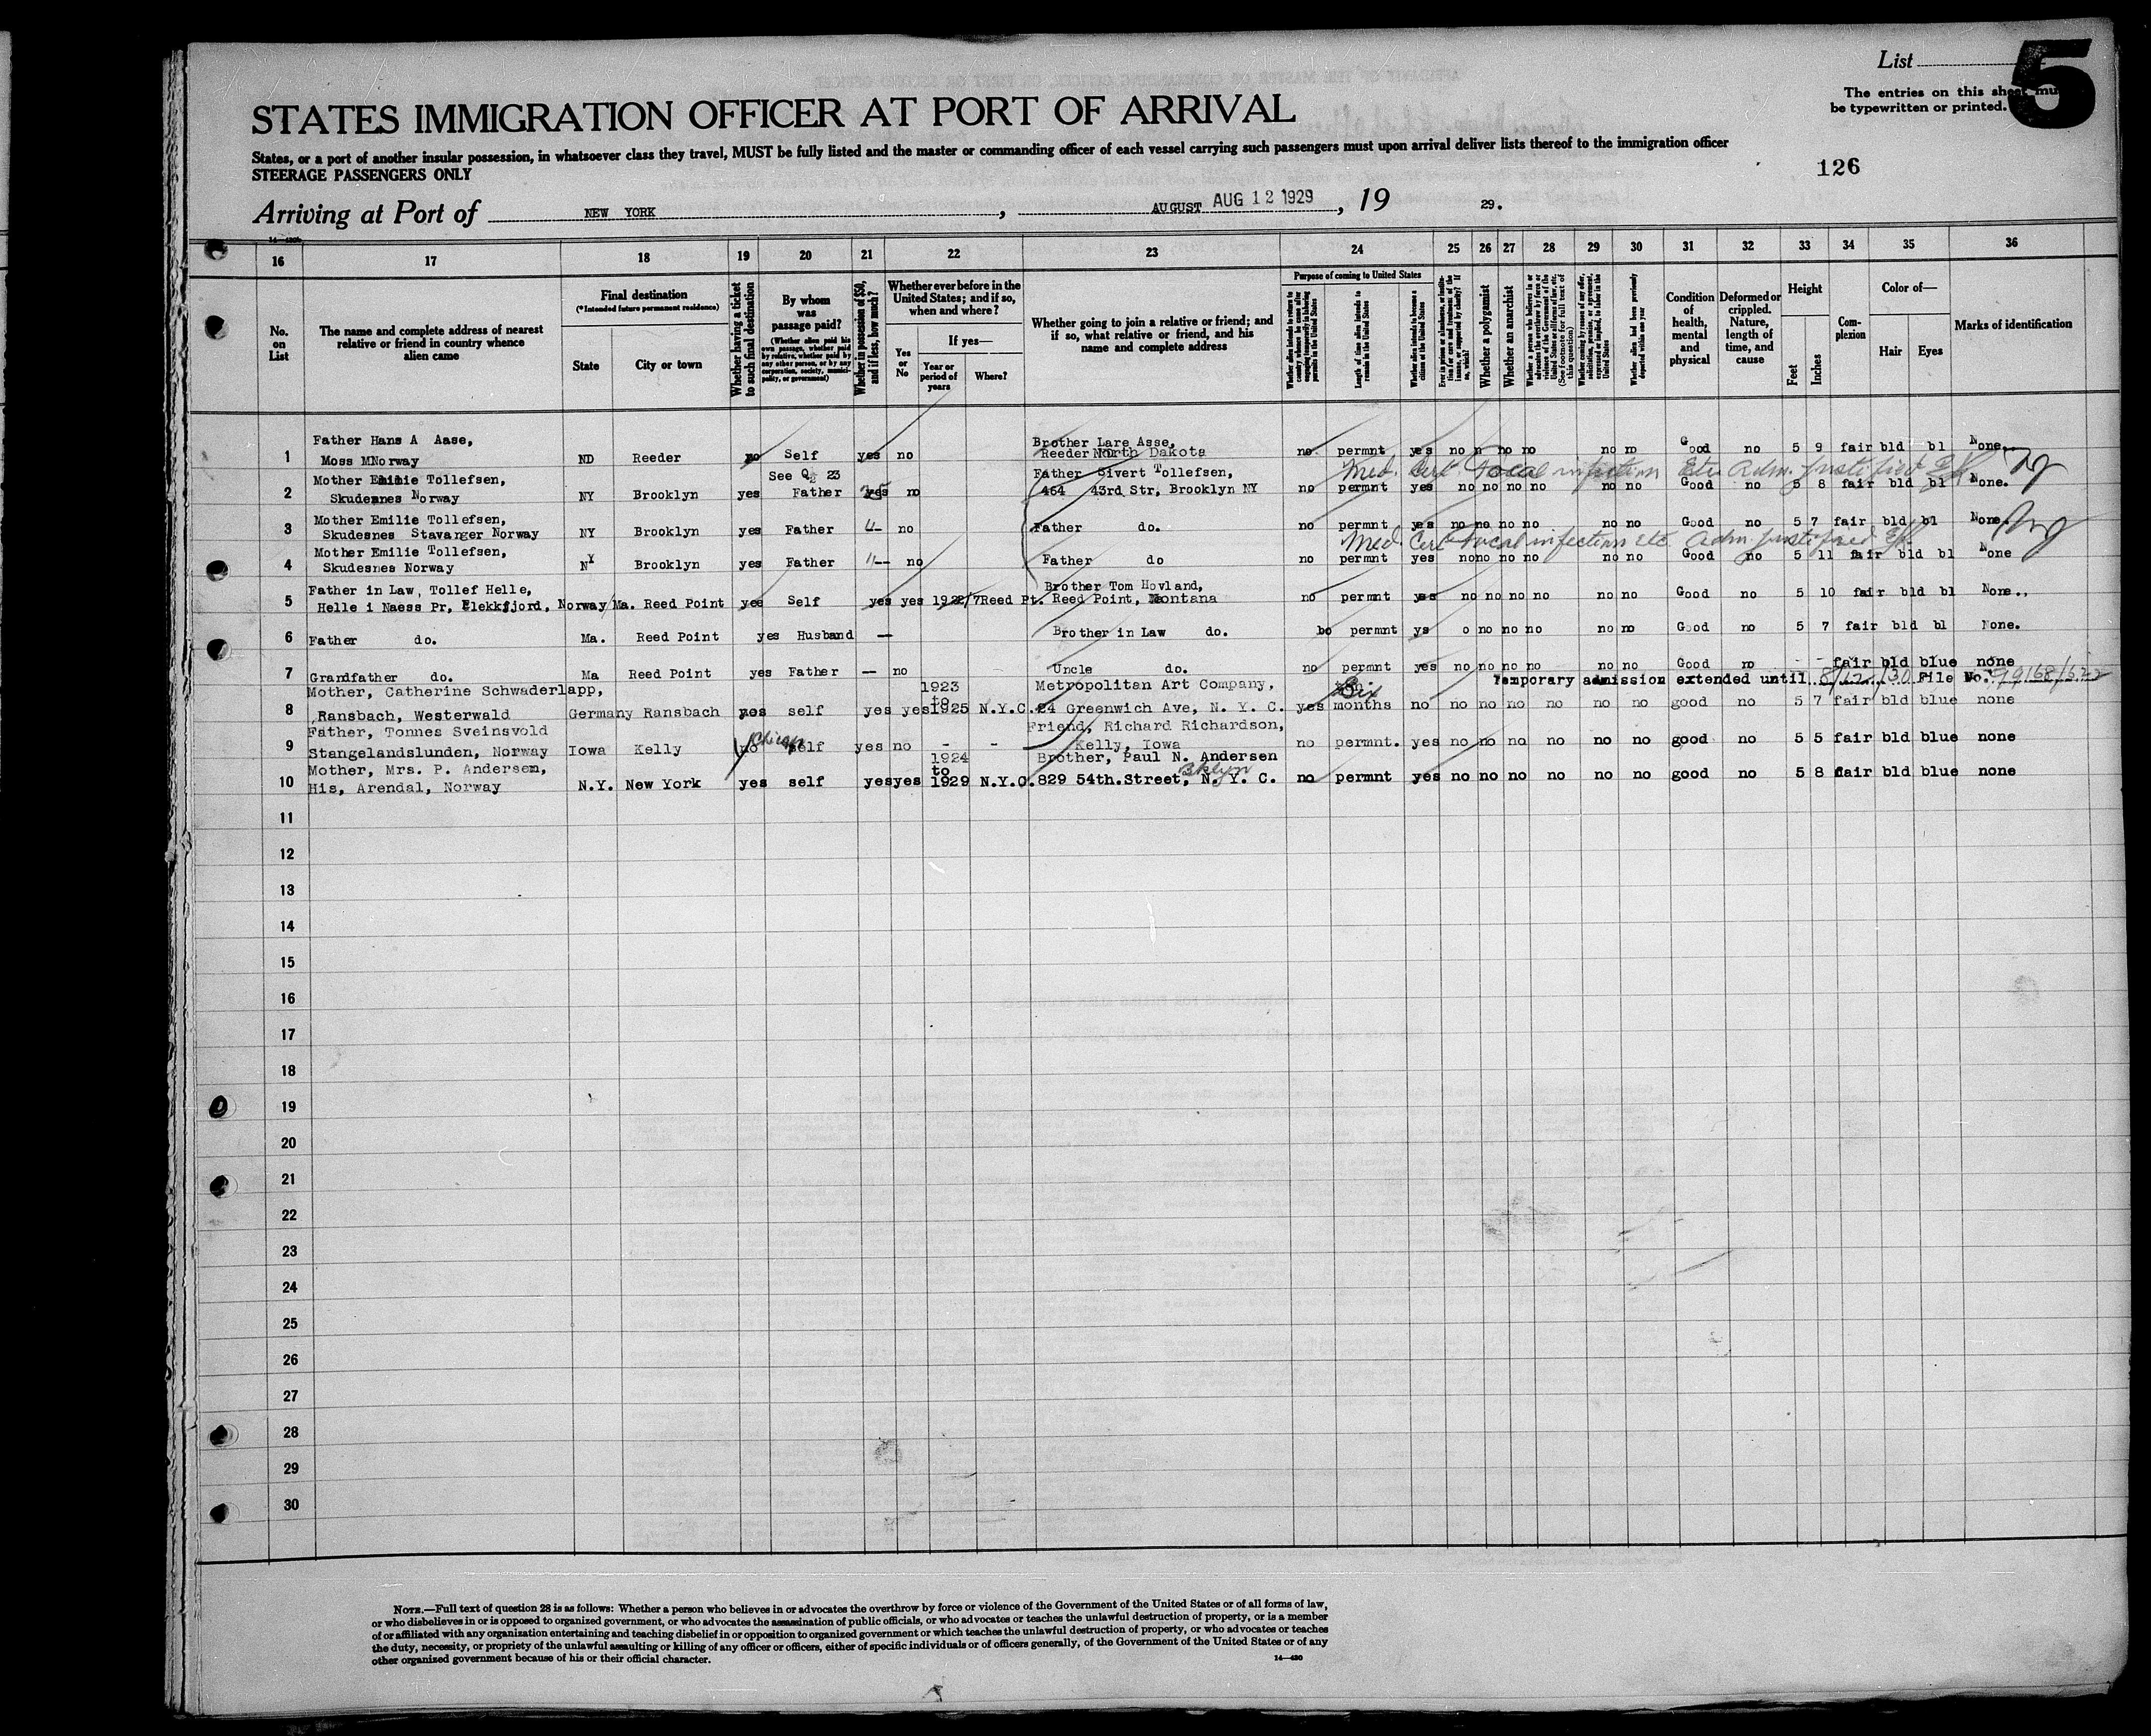 List
5
The entries on this sheet mu
be typewritten or printed.
STATES IMMIGRATION OFFICER AT PORT OF ARRIVAL
States, or a port of another insular possession, in whatsoever class they travel, MUST be fully listed and the master or commanding officer of each vessel carrying such passengers must upon arrival deliver lists thereof to the immigration officer
STEERAGE PASSENGERS ONLY
126
Arriving at Port of NEW YORK, AUGUST AUG 12 1929, 19 29.
16 17 18 19 20 21 22 23 24 25 26 27 28 29 30 31 32 33 34 35 36
No. on List
The name and complete address of nearest relative or friend in country whence alien came
Final destination
(*Intended future permanent residence)
State
City or town
Whether having a ticket to such final destination
By whom was passage paid?
(Whether alien paid his own passage, whether paid by relative, whether paid by any other person, or by any corporation, society, municipality, or government)
Whether in possession of $50, and if less, how much?
Whether ever before in the United States; and if so, when and where?
Yes or No
If yes—
Year or period of years
Where?
Whether going to join a relative or friend; and if so, what relative or friend, and his name and complete address
Purpose of coming to United States
Length of time alien intends to remain in the United States
Whether alien intends to become a citizen of the United States
Whether a polygamist
Whether an anarchist
(See footnote for full text of this question)
Whether alien had been previously deported within one year
Condition of health, mental and physical
Deformed or crippled. Nature, length of time, and cause
Height
Feet
Inches
Complexion
Color of—
Hair
Eyes
Marks of identification
Father Hans A Aase, Brother Lars Asse,
1 Moss MNorway ND Reeder no Self yes no Reeder North Dakota no permnt yes no n no no no no Good no 5 9 fair bld bl None.
Mother Emilie Tollefsen, See Q 23 Father Sivert Tollefsen, Med. Cert Focal infection Etc Adm. justified
2 Skudesnes Norway NY Brooklyn yes Father yes no 464 43rd Str, Brooklyn NY no permnt yes no no no no no no Good no 5 8 fair bld bl None.
Mother Emilie Tollefsen,
3 Skudesnes Stavanger Norway NY Brooklyn yes Father no Father do. no permnt yes no no no no no no Good no 5 7 fair bld bl None.
Mother Emilie Tollefsen, Med. Cert Focal infection Etc Adm. justified
4 Skudesnes Norway NY Brooklyn yes Father no Father do no permnt yes no no no no no no Good no 5 11 fair bld bl None
Father in Law, Tollef Helle, Brother Tom Hovland,
5 Helle i Naess Pr, Flekkfjord, Norway Ma. Reed Point yes Self yes yes 1922/7 Reed Pt. Reed Point, Montana no permnt yes no no no no no no Good no 5 10 fair bld bl None.
6 Father do. Ma. Reed Point yes Husband — Brother in Law do. bo permnt ys o no no no no no Good no 5 7 fair bld bl None.
7 Grandfather do. Ma Reed Point yes Father — no Uncle do. no permnt yes no no no no no no Good no - - fair bld blue none
Temporary admission extended until 8/12/30 File No.
Mother, Catherine Schwaderlapp, 1923 to Metropolitan Art Company, Six
8 Ransbach, Westerwald Germany Ransbach yes self yes yes 1925 N.Y.C. 24 Greenwich Ave, N. Y. C. yes months no no no no no no no good no 5 7 fair bld blue none
Father, Tonnes Sveinsvold Friend, Richard Richardson,
9 Stangelandslunden, Norway Iowa Kelly no Chicago self yes no - - Kelly, Iowa no permnt. yes no no no no no no good no 5 5 fair bld blue none
Mother, Mrs. P. Andersen, 1924 to Brother, Paul N. Andersen Bklyn
10 His, Arendal, Norway N.Y. New York yes self yes yes 1929 N.Y.C. 829 54th.Street, N. Y. C. no permnt yes no no no no no no good no 5 8 fair bld blue none
11
12
13
14
15
16
17
18
19
20
21
22
23
24
25
26
27
28
29
30
NOTE.—Full text of question 28 is as follows: Whether a person who believes in or advocates the overthrow by force or violence of the Government of the United States or of all forms of law,
or who disbelieves in or is opposed to organized government, or who advocates the assassination of public officials, or who advocates or teaches the unlawful destruction of property, or is a member
of or affiliated with any organization entertaining and teaching disbelief in or opposition to organized government or which teaches the unlawful destruction of property, or who advocates or teaches
the duty, necessity, or propriety of the unlawful assaulting or killing of any officer or officers, either of specific individuals or of officers generally, of the Government of the United States or of any
other organized government because of his or their official character.
14—430